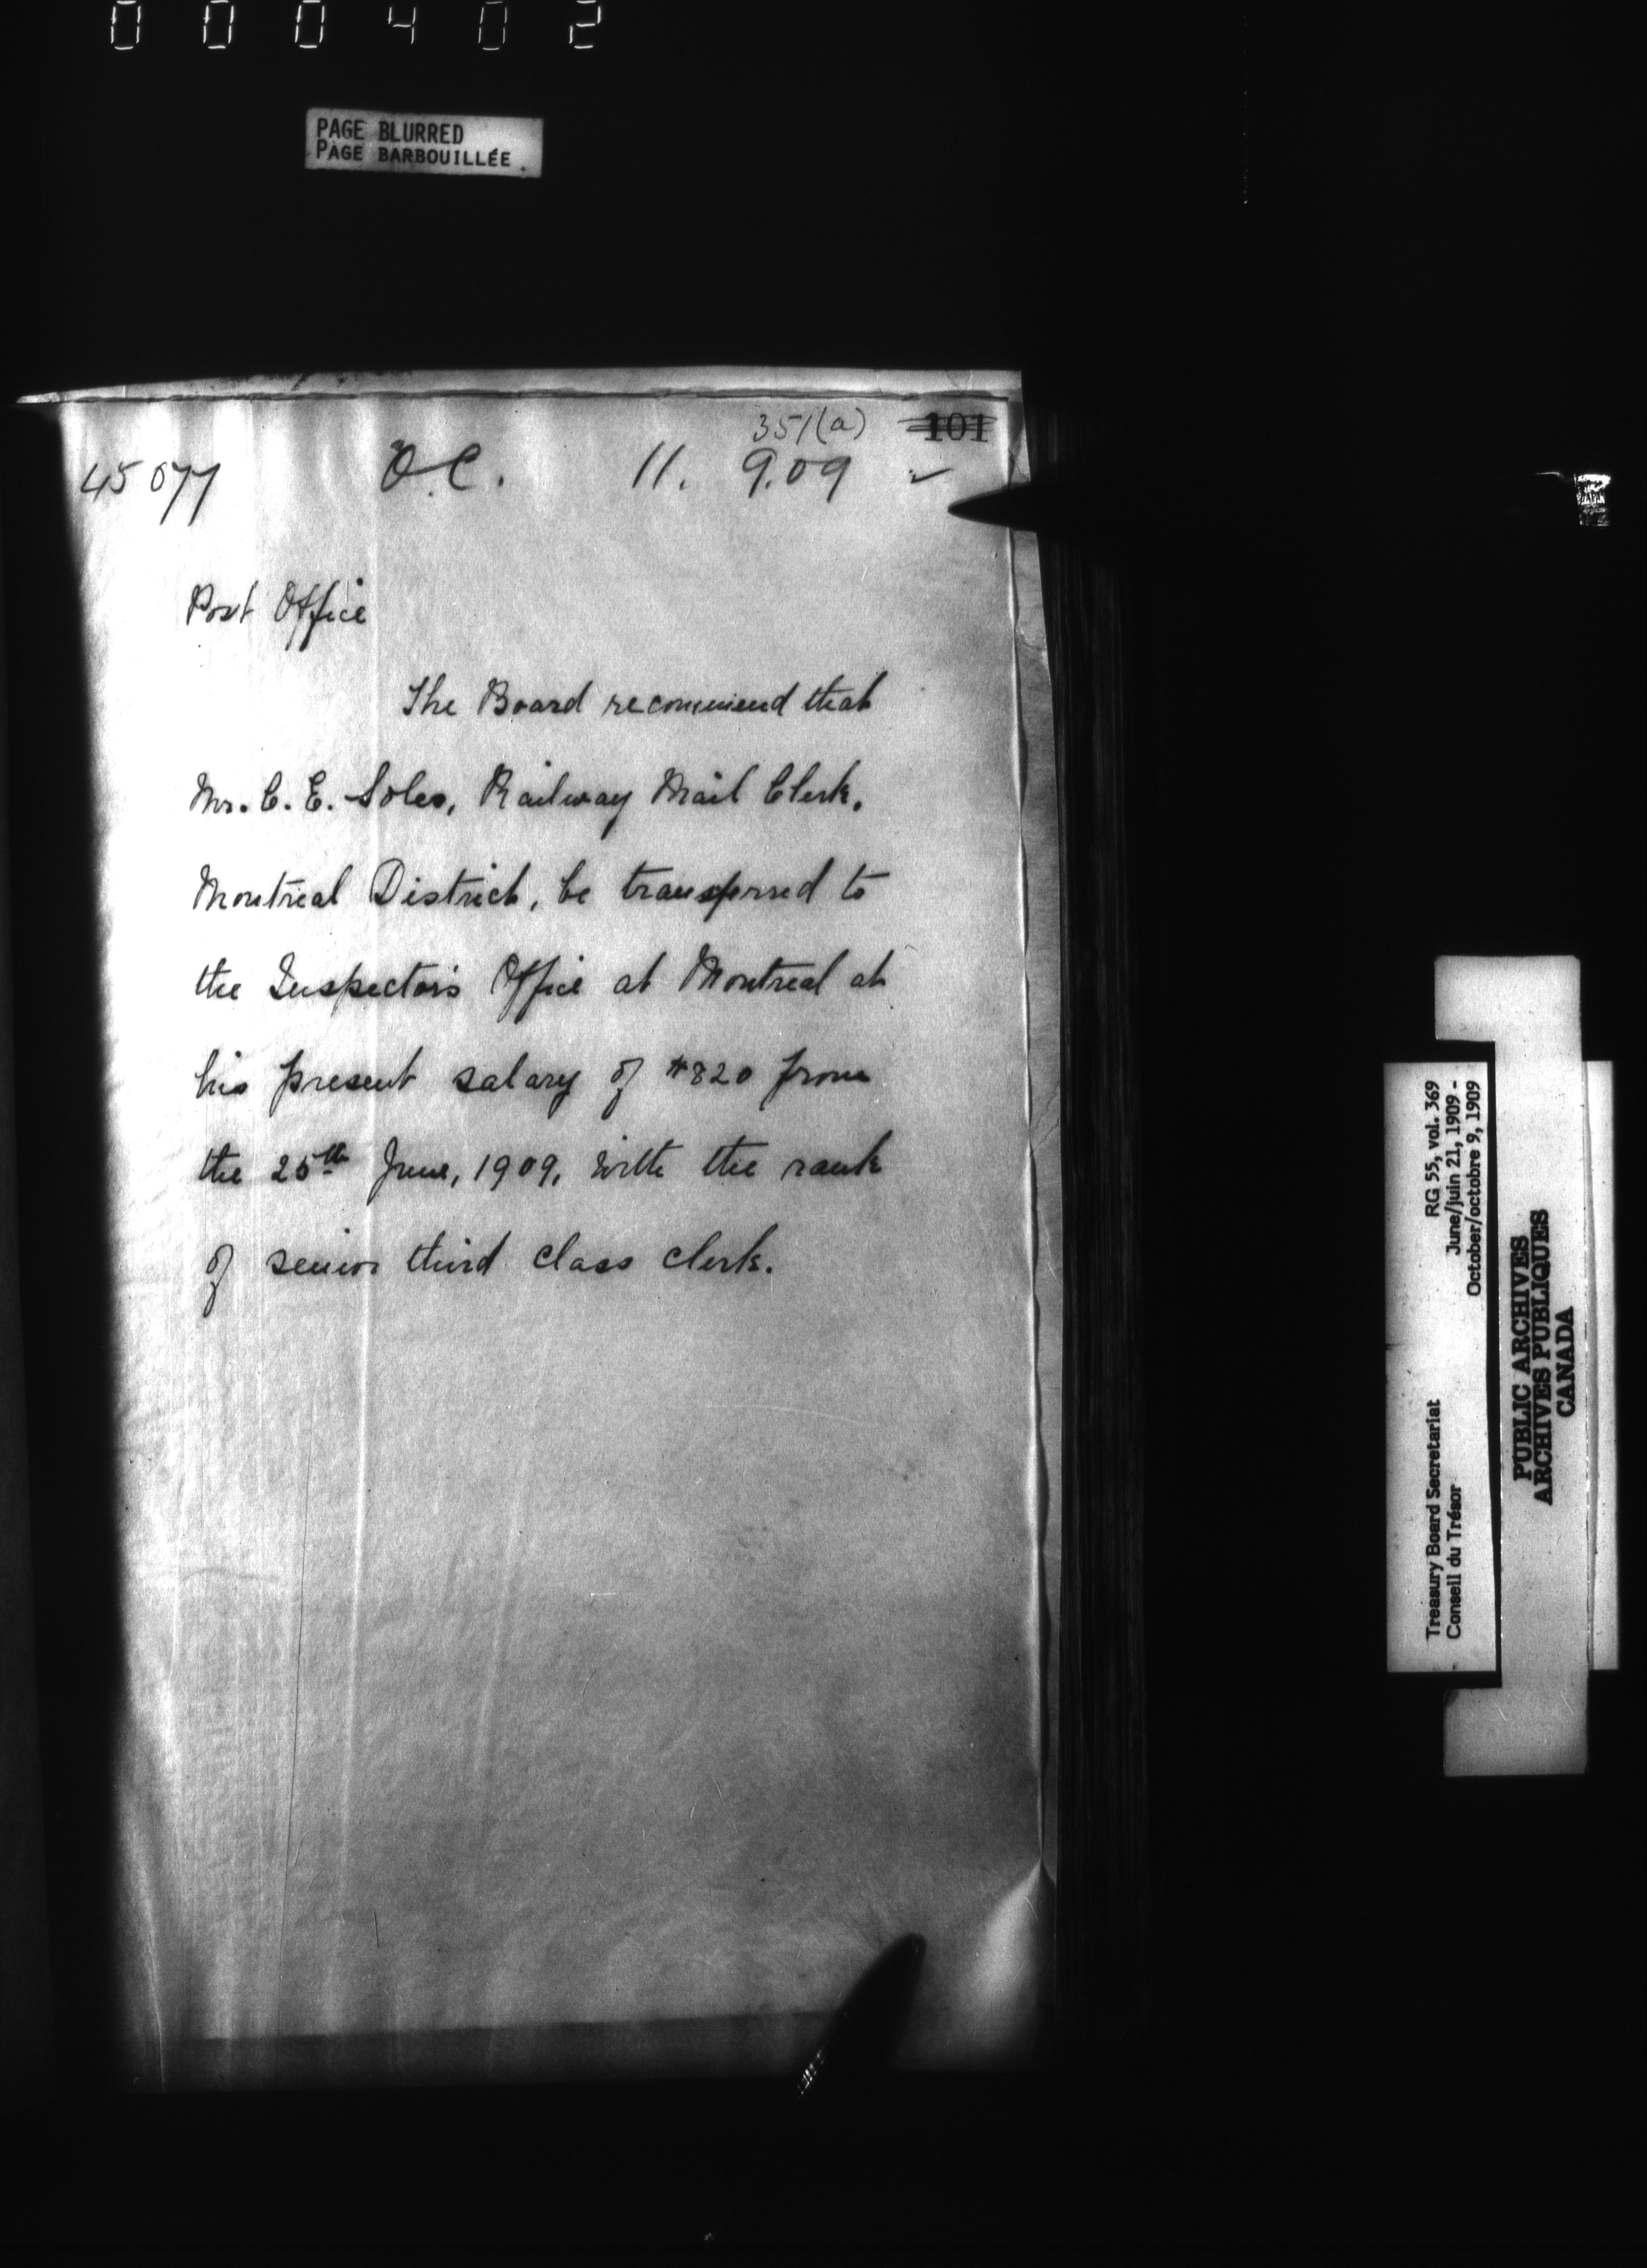 000402
PAGE BLURRED
PAGE BARBOUILLÉE
351(a) 101
45077 O.C. 11. 9.09 ✓
Post Office
The Board recommend that
Mr. C. E. Soles, Railway Mail Clerk,
Montreal District, be transferred to
the Inspector's Office at Montreal at
his present salary of $820 from
the 25th June, 1909, with the rank
of senior third class clerk.
JAPAN
Treasury Board Secretariat RG 55, vol. 369
Conseil du Trésor June/juin 21, 1909 -
October/octobre 9, 1909
PUBLIC ARCHIVES
ARCHIVES PUBLIQUES
CANADA